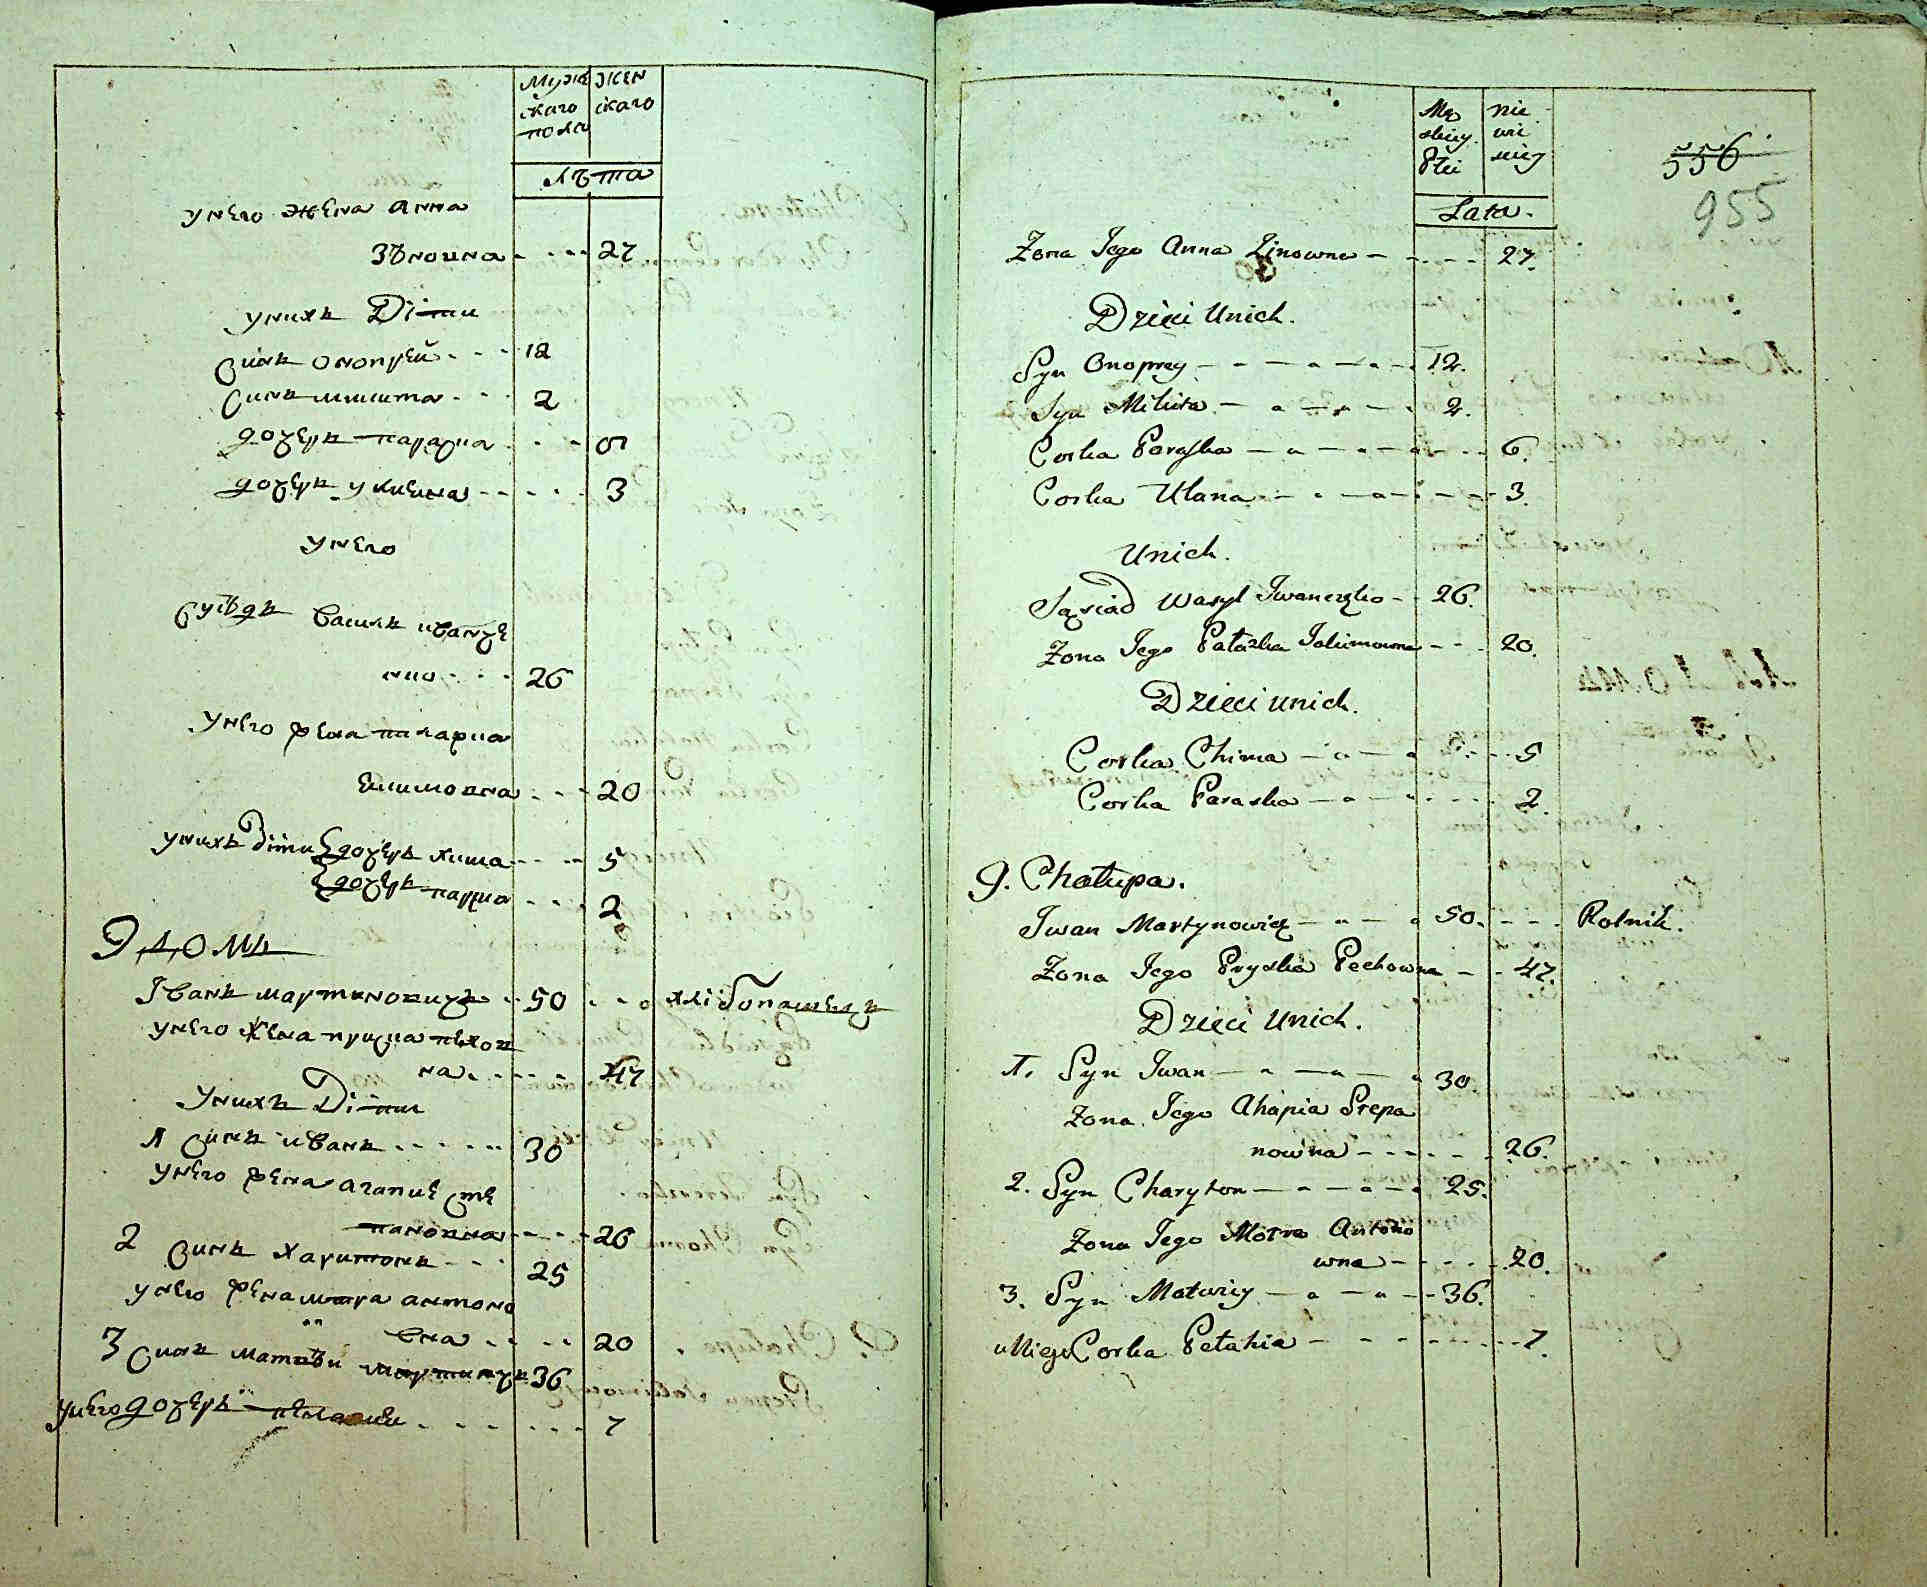 Муже
скаго
пола
жен
скаго
лѣта
унего жена анна
зѣновна 27
унихъ Діти
синъ онопрей 12
синъ микита 2
дочеръ параска 6
дочеръ улиена 3
унего
сусѣдъ василь иванче
нко 26
унего жена палажка
екимовна 20
унихъ діти дочеръ хима 5
дочеръ параска 2
9 домъ
Іванъ мартиновичъ 50 хлібопашецъ
унего жена приска пехов
на 47
унихъ Діти
1 синъ иванъ 30
унего жена агапиє сте
пановна 26
2 синъ харитонъ 25
унего жена мотра антоно
вна 20
3 синъ матвѣй 36
унего дочеръ 7
Mę
skiey
Płci
nie
wie
sciey
Lata.
556
955
Zona Jego Anna Zinowna 27.
Dzieci Unich.
Syn Onoprey 12.
Syn Mikita 2.
Corka Paraska 6.
Corka Ulana 3.
Unich.
Sąsiad Wasyl Iwanczko 26.
Zona Jego Pałazka Jakimowna 20.
Dzieci unich.
Corka Chima 5
Corka Paraska 2.
9. Chałupa.
Iwan Martynowicz 50. Rolnik.
Zona Jego Pryska Pechowna 47.
Dzieci Unich.
1. Syn Iwan 30.
Zona Jego Ahapia Stepa
nowna 26.
2. Syn Charyton 25.
Zona Jego Motra Antono
wna 20.
3. Syn Matwiey 36.
u Niego Corka Petahia 7.